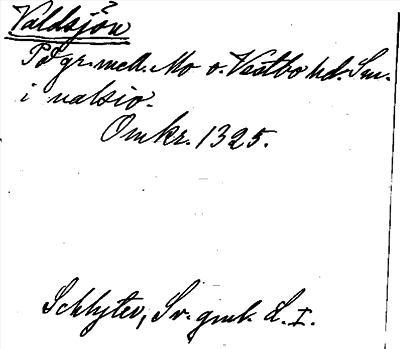 Valdsjön
På gr. mell. Mo o. Västbo hd. Sm.
i valsio.
Omkr. 1325.
Schlyter, Sv. gmk. L. I.